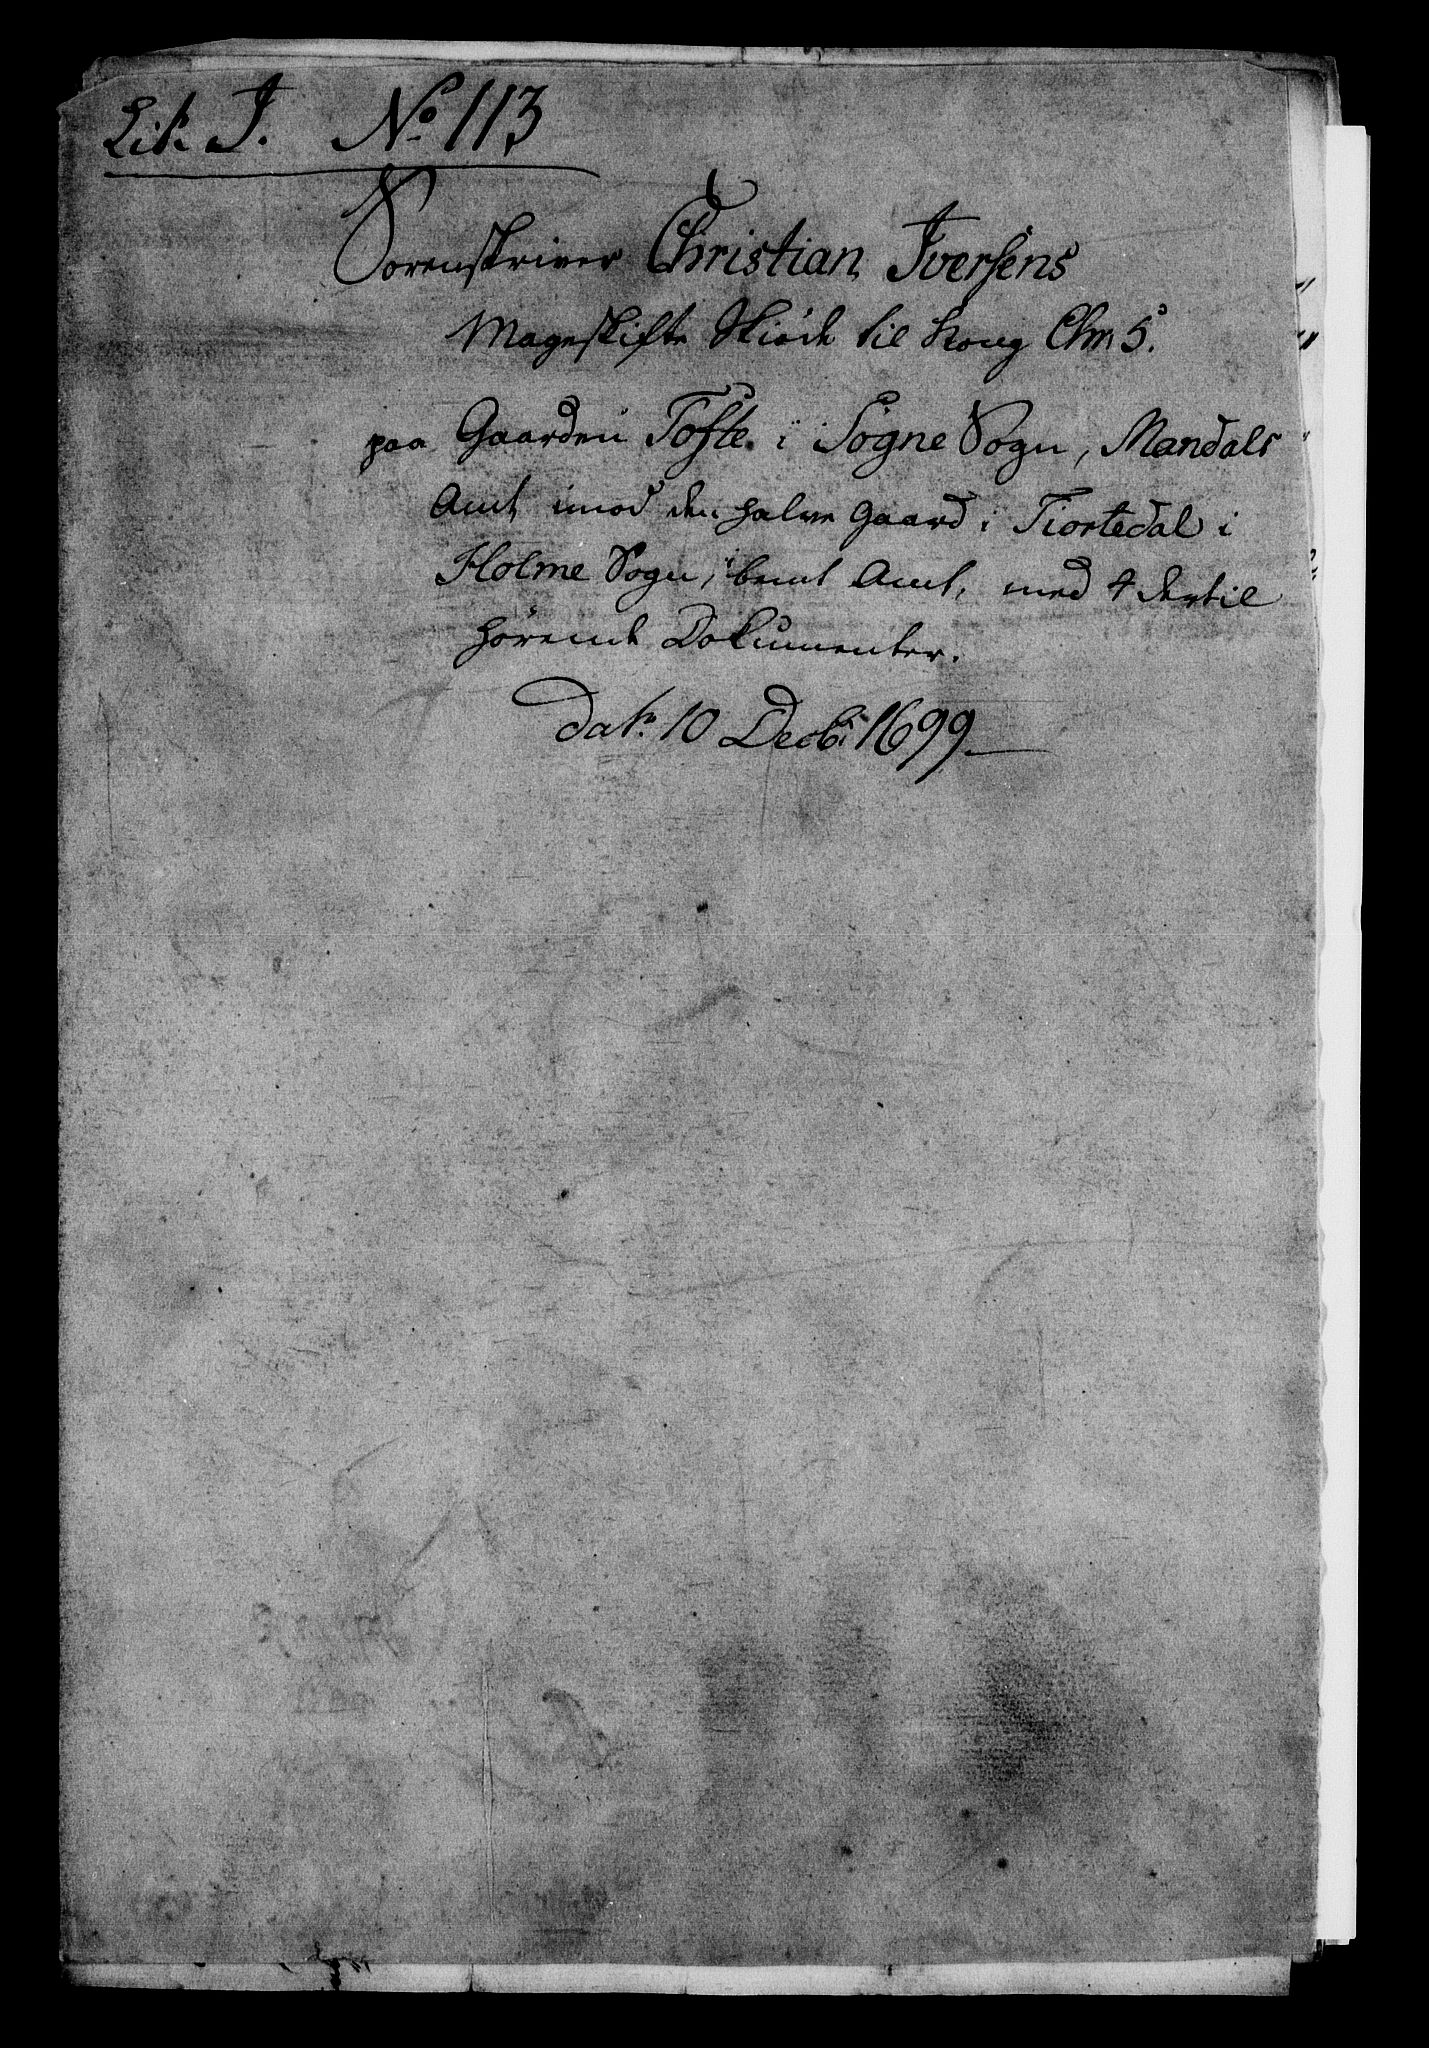 Lit. J. No 113
Sorenskriver Christian Iversens
Mageskifte Skiöde til Kong Chr. 5.
paa Gaarden Tofte i Sögne Sogn, Mandals
Amt imod den halve Gaard i Tiortedal i
Holme Sogn, i bemt Amt, med 4 dertil
hörende Dokumenter.
dat. 10 Decbr 1699